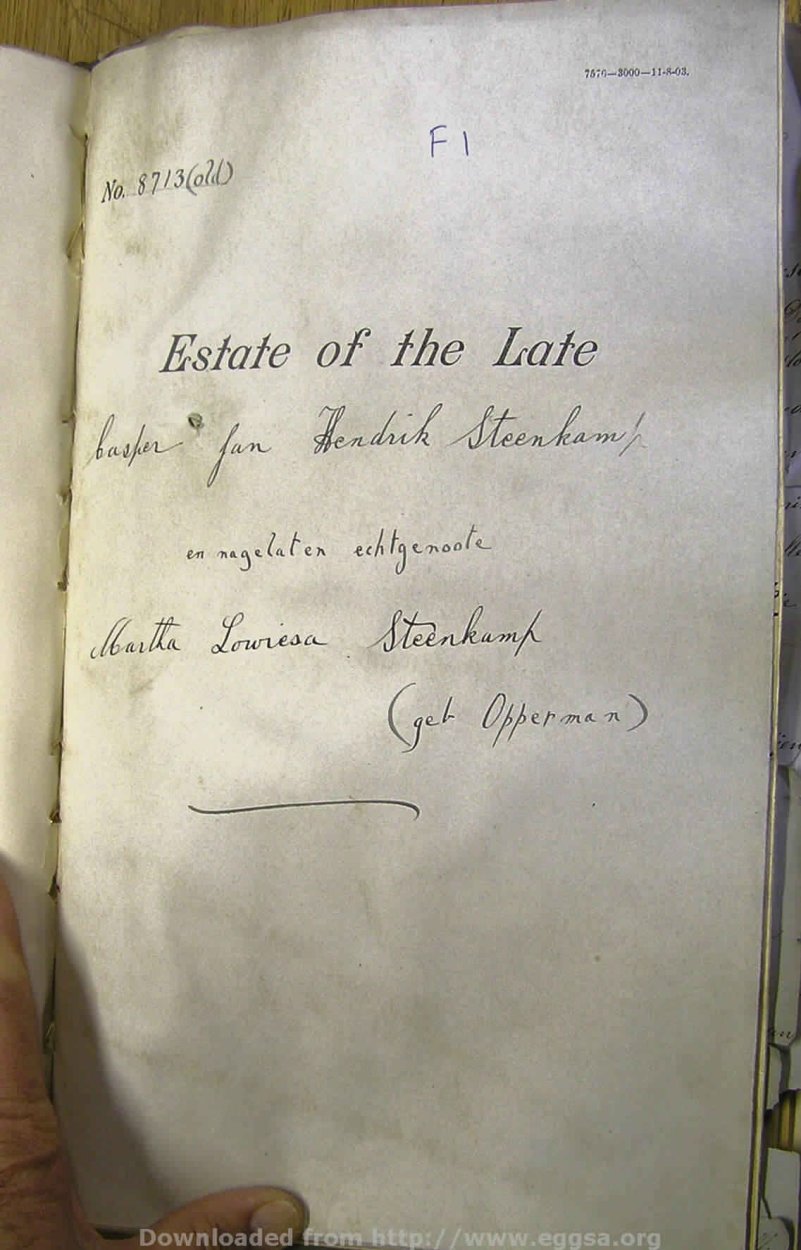 7570—3000—11-8-03.
F1
No. 8713(old)
Estate of the Late
Casper Jan Hendrik Steenkamp
en nagelaten echtgenoote
Martha Lowiesa Steenkamp
(geb Opperman)
Downloaded from http://www.eggsa.org